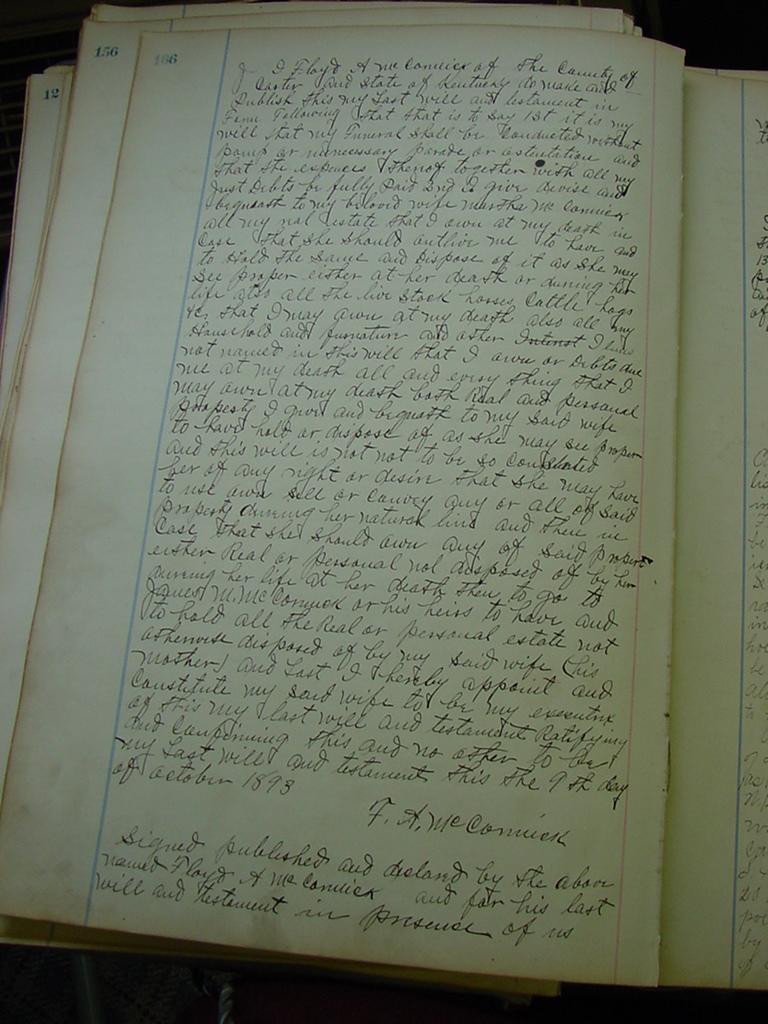 156
166
12
I Floyd A McCormick of The County of
Carter and State of Kentucky do make and
Publish this my Last will and testament in
Form Following That that is to Say 1st it is my
will that my Funeral Shall be Conducted without
pomp or unnecessary parade or ostentation and
That the expences thereof together with all my
Just Debts be fully Paid 2nd I give devise and
bequeast to my beloved wife Martha McCormick
all my real estate that I own at my death in
Case That she should outlive me to have and
to Hold the Same and Dispose of it as she my
See proper either at her death or during her
life also all the live stock horses, Cattle hogs
&c, that I may own at my death also all my
Household and furnature and other Interest I have
not named in this will that I own or Debts due
me at my death all and every thing that I
may own at my death both Real and personal
Property I give and bequeast to my Said wife
to have hold or dispose of as she may see proper
and this will is not not to be so Construed
her of any right or desire that she may have
to use own sell or convey any or all of said
Property during her natural line and then in
Case that she should own any of said propert
either Real or personal not disposed of by her
during her life at her death then to go to
James M. McCormick or his heirs to have and
to hold all the Real or personal estate not
otherwise disposed of by my said wife (his
mother) and Last I Thereby appoint and
Constitute my said wife to be my executrix
of this my last will and testament Ratifying
and Confirming this and no other to be
my Last will and testament this the 9th day
of october 1893
F. A. McCormick
Signed published and declared by the above
named Floyd A McCormick and for his last
will and testament in presence of us